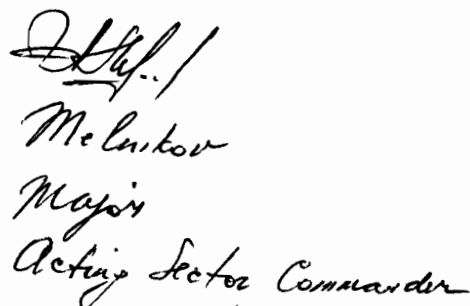 Melnikov
Major
Acting Sector Commander